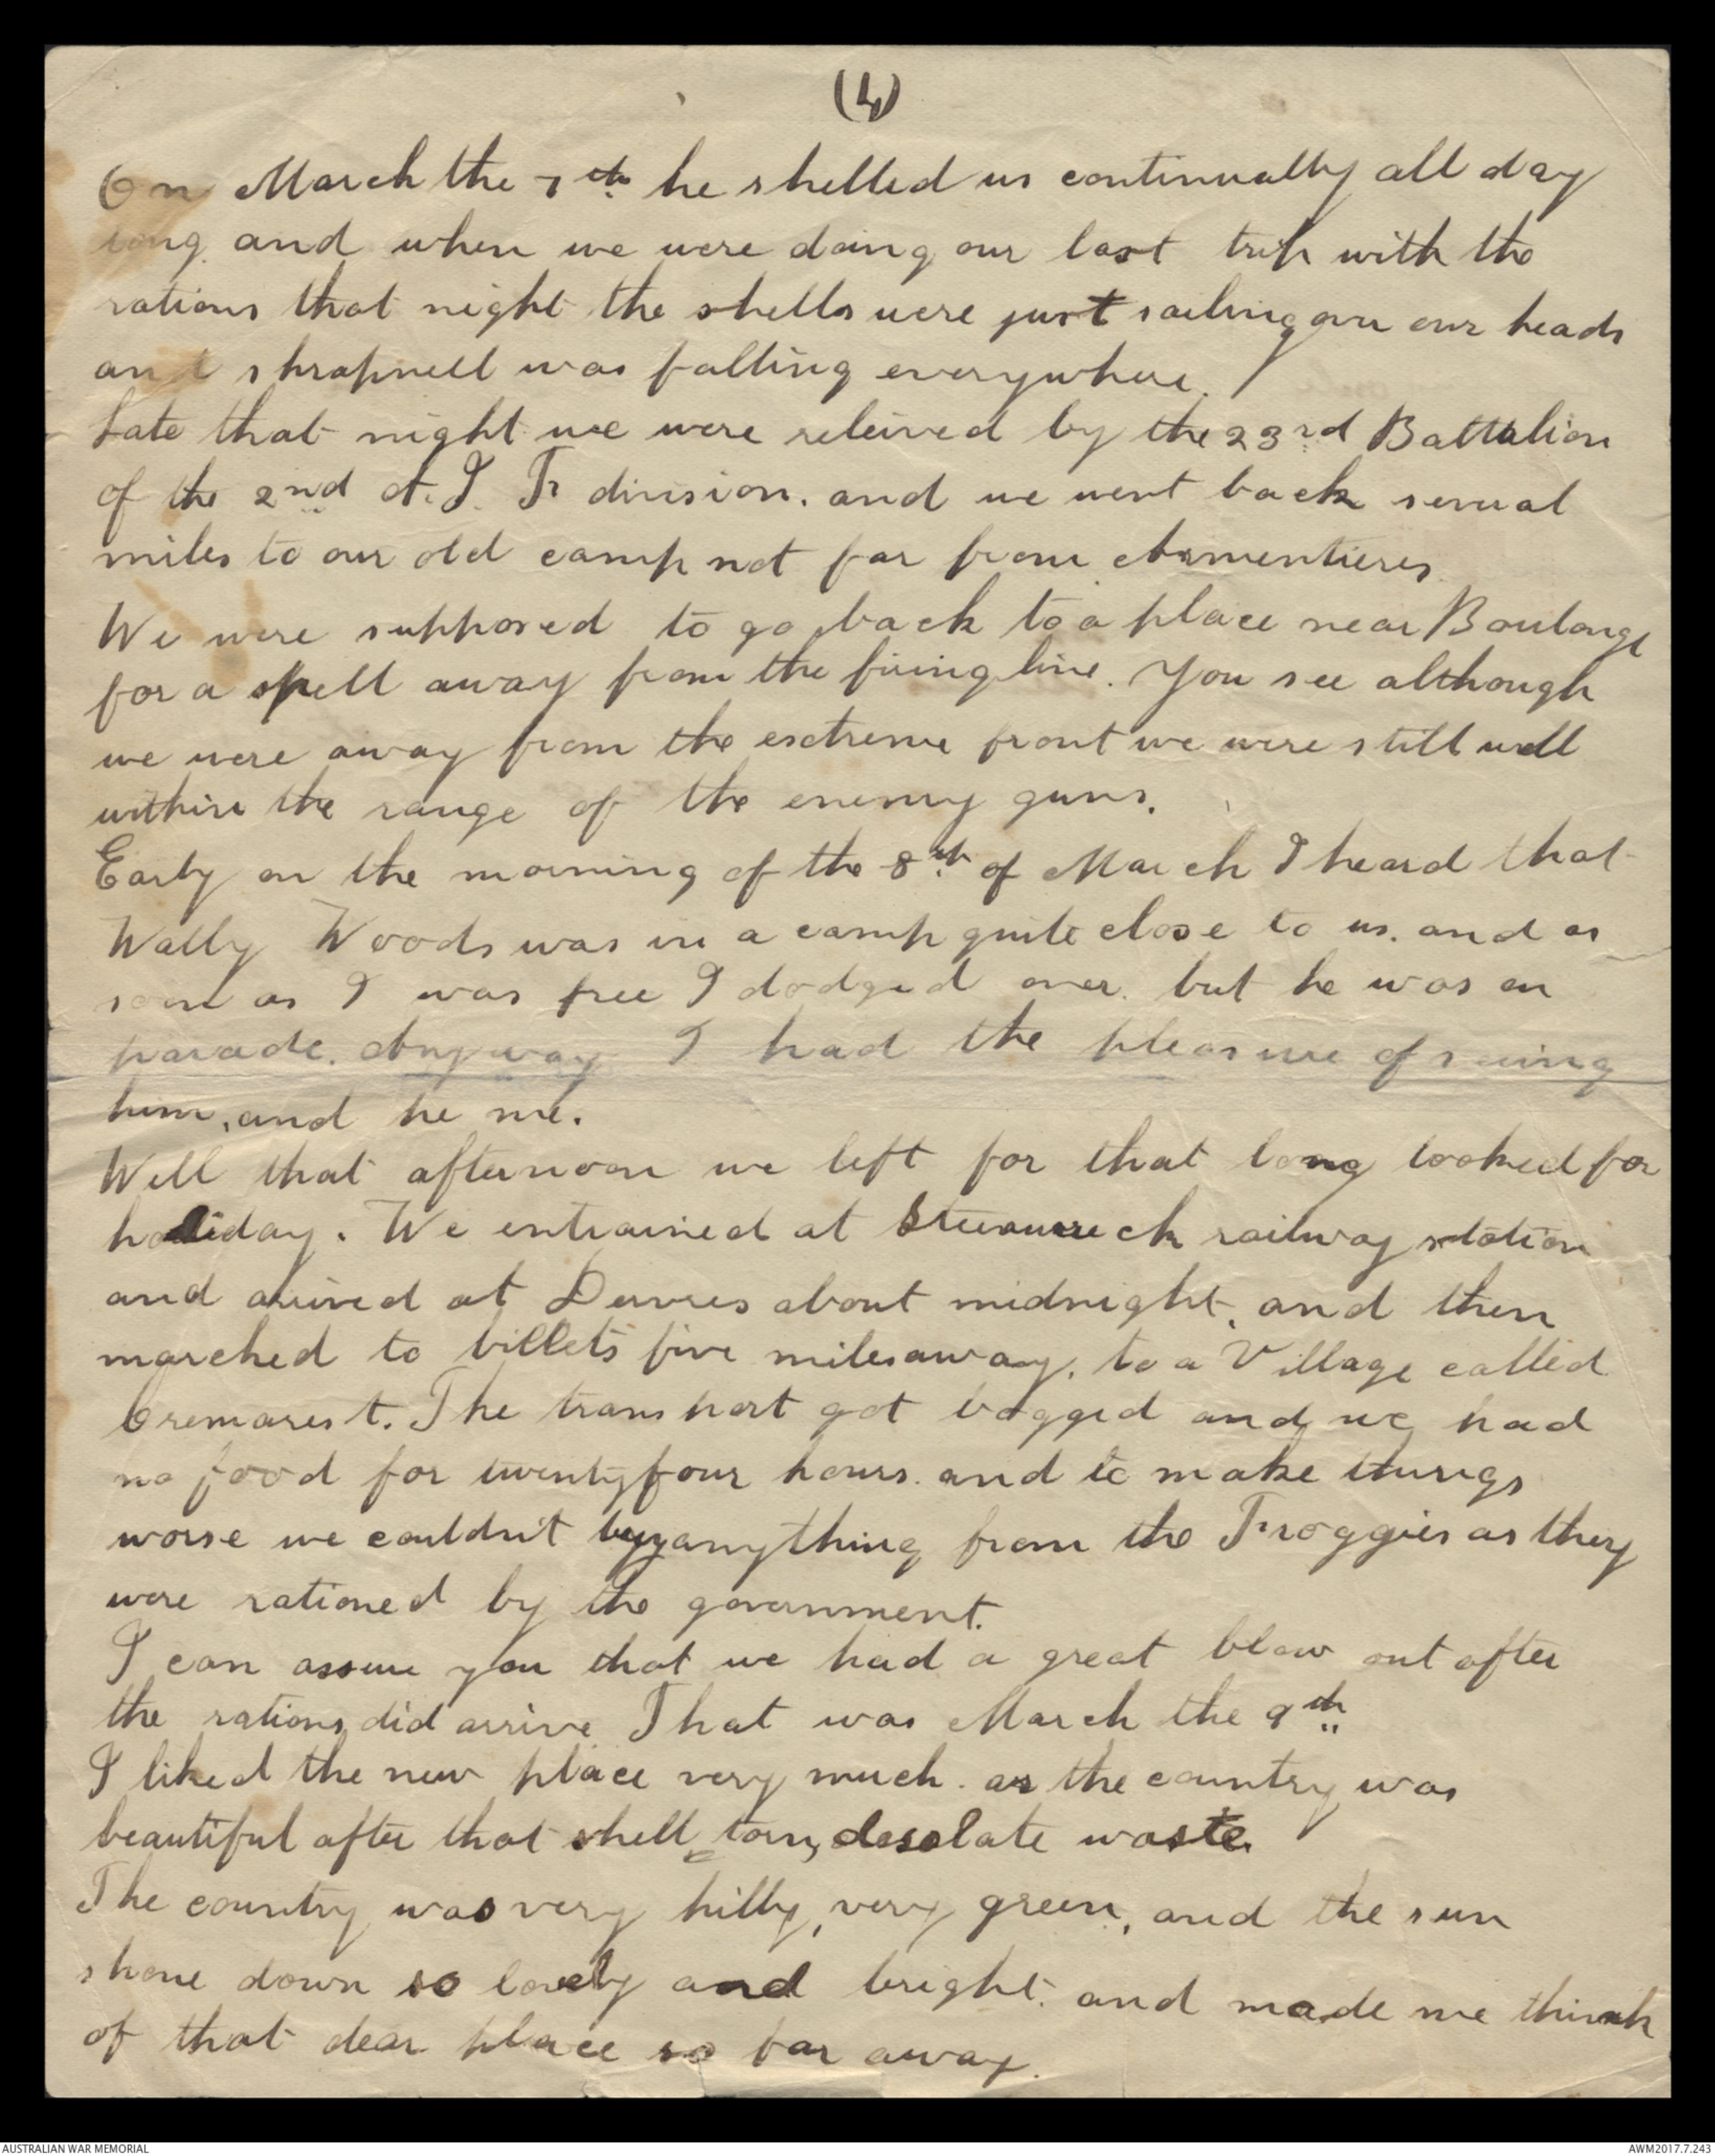 (4)
On March the 7th he shelled us continually all day
long. and when we were doing our last trip with the
rations that night the shells were just sailing over our heads
and shrapnell was falling everywhere.
Late that night we were releived by the 23rd Battalion
of the 2nd A. I. F. division. and we went back several
miles to our old camp not far from Armentieres
We were supposed to go back to a place near Boulonge
for a spell away from the firing line. You see although
we were away from the extreme front we were still well
within the range of the enemy guns.
Early on the morning of the 8th of March I heard that
Wally Woods was in a camp quite close to us. and as
soon as I was free I dodged over. but he was on
parade. Anyway I had the pleasure of seeing
him, and he me.
Well that afternoon we left for that long looked for
holiday. We entrained at railway station
and arrived at Desvres about midnight, and then
marched to billets five miles away, to a Village called
Bremarest. The transport got bogged and we had
no food for twentyfour hours. and to make things
worse we couldn't buy anything from the Froggies as they
were rationed by the government.
I can assure you that we had a great blow out after
the rations did arrive. That was March the 9th
I liked the new place very much. as the country was
beautiful after that shell torn, desolate waste.
The country was very hilly, very green, and the sun
shone down so lovely and bright. and made me think
of that dear place so far away.
AUSTRALIAN WAR MEMORIAL
AWM2017.7.243